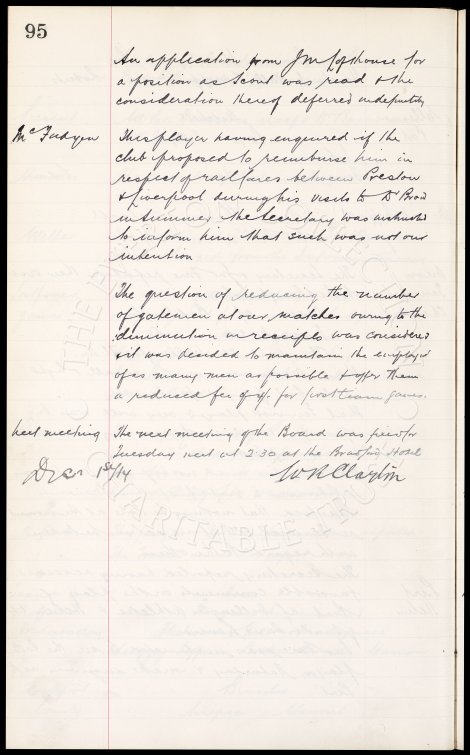 95
An application from J M Lofthouse for
a position as Scout was read & the
consideration thereof deferred indefinitely
McFadyen This player having enquired if the
club proposed to reimburse him in
respect of rail fares between Preston
& Liverpool during his visits to Dr
in Summer the Secretary was instructed
to inform him that such was not our
intention
The question of reducing the number
of gatemen at our matches owing to the
diminution in receipts was considered
& it was decided to maintain the employ
of as many men as possible & offer them
a reduced fee of for first team games.
next meeting The next meeting of the Board was fixed for
Tuesday next at 2.30 at the Bradford Hotel
Dec 1st/14 W R Clayton
CHARITABLE TRUST